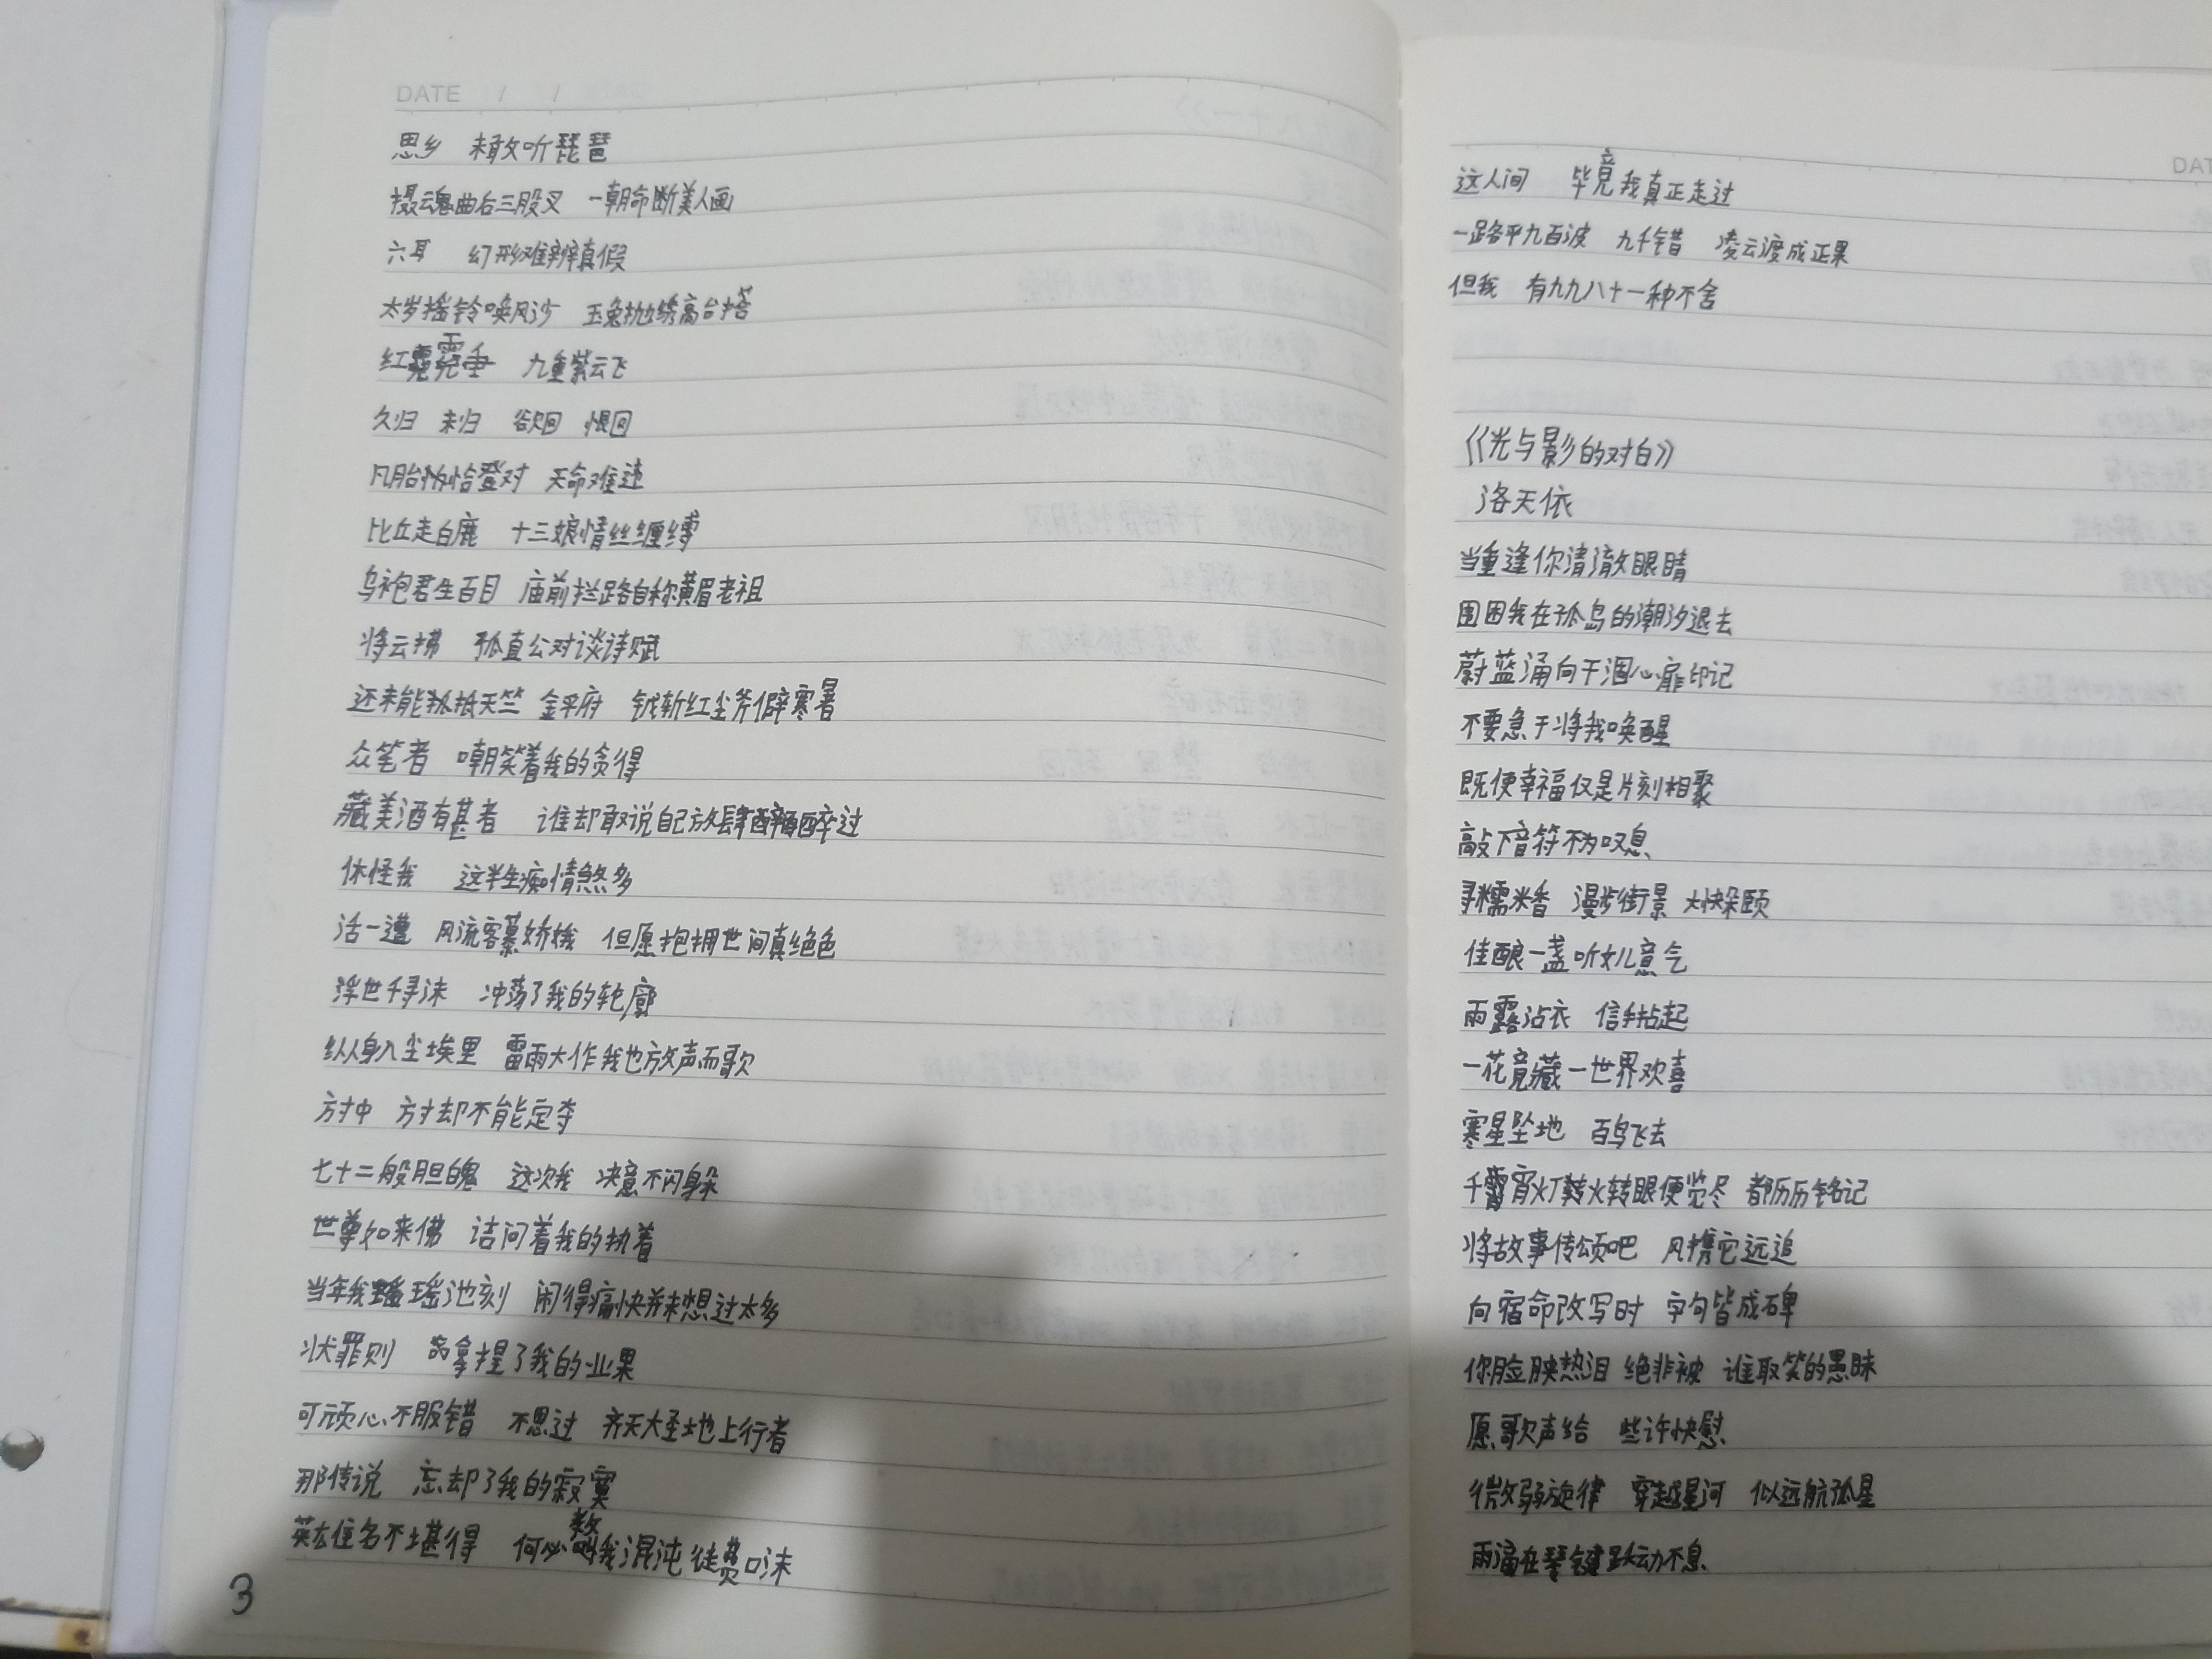 DATE / /
思乡 未敢听琵琶
摄魂曲后三股叉 一朝命断美人画
六耳 幻形难辨真假
太岁摇铃唤风沙 玉兔抛绣高台搭
红霓 九重紫云飞
久归 未归 欲回 恨回
凡胎恰恰登对 天命难违
比丘走白鹿 十三娘情丝缠缚
乌袍君生百目 庙前拦路自称黄眉老祖
将云拂 孤直公对谈诗赋
还未能抵天竺 金平府 钺斩红尘斧僻寒暑
众笔者 嘲笑着我的贪得
藏美酒有甚者 谁却敢说自己放肆醉过
休怪我 这半生痴情煞多
活一遭 风流客慕娇娥 但愿抱拥世间真绝色
浮世千寻沫 冲荡了我的轮廓
纵身入尘埃里 雷雨大作我也放声而歌
方寸中 方寸却不能定夺
七十二般胆魄 这次我 决意不闪躲
世尊如来佛 诘问着我的执着
当年我瑶池刻 闹得痛快并未想过太多
状罪则 拿捏了我的业果
可顽心不服错 不思过 齐天大圣地上行者
那传说 忘却了我的寂寞
英雄名不堪得 何必教我混沌徒费口沫
3
DAT
这人间 毕竟我真正走过
一路平九百波 九千错 凌云渡成正果
但我 有九九八十一种不舍
《光与影的对白》
洛天依
当重逢你清澈眼睛
围困我在孤岛的潮汐退去
蔚蓝涌向干涸心扉印记
不要急于将我唤醒
既便幸福仅是片刻相聚
敲下音符不为叹息
寻糯米香 漫步街景 大快朵颐
佳酿一盏听女儿意气
雨露沾衣 信手拈起
一花竟藏一世界欢喜
寒星坠地 百鸟飞去
千宵灯火转眼便览尽 都历历铭记
将故事传颂吧 风携它远追
向宿命改写时 字句皆成碑
你脸映热泪 绝非被 谁取笑的愚昧
愿歌声给 些许快慰
微弱旋律 穿越星河 似远航孤星
雨滴在琴键跃动不息